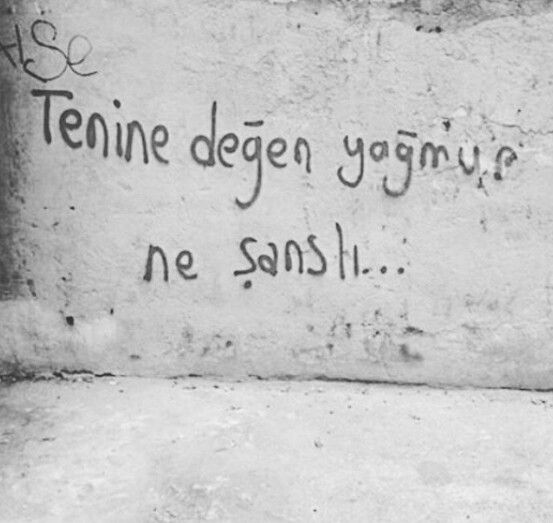 Tenine değen yağmur
ne şanslı...